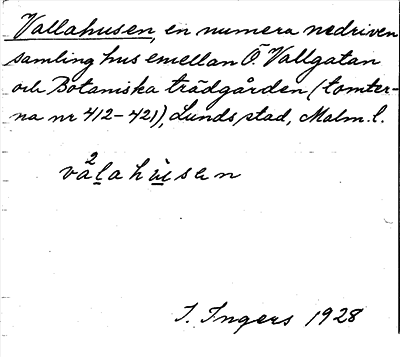 Vallahusen, en numera nedriven
samling hus emellan Ö. Vallgatan
och Botaniska trädgården (tomter-
na nr 412-421), Lunds stad, Malm. l.
2
valahusen
I. Ingers 1928